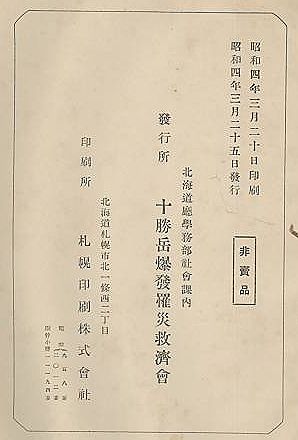 昭和四年三月二十日印刷
昭和四年三月二十五日發行
非賣品
北海道廳學務部社會課內
發行所 十勝岳爆發罹災救濟會
北海道札幌市北一條西二丁目
印刷所 札幌印刷株式會社